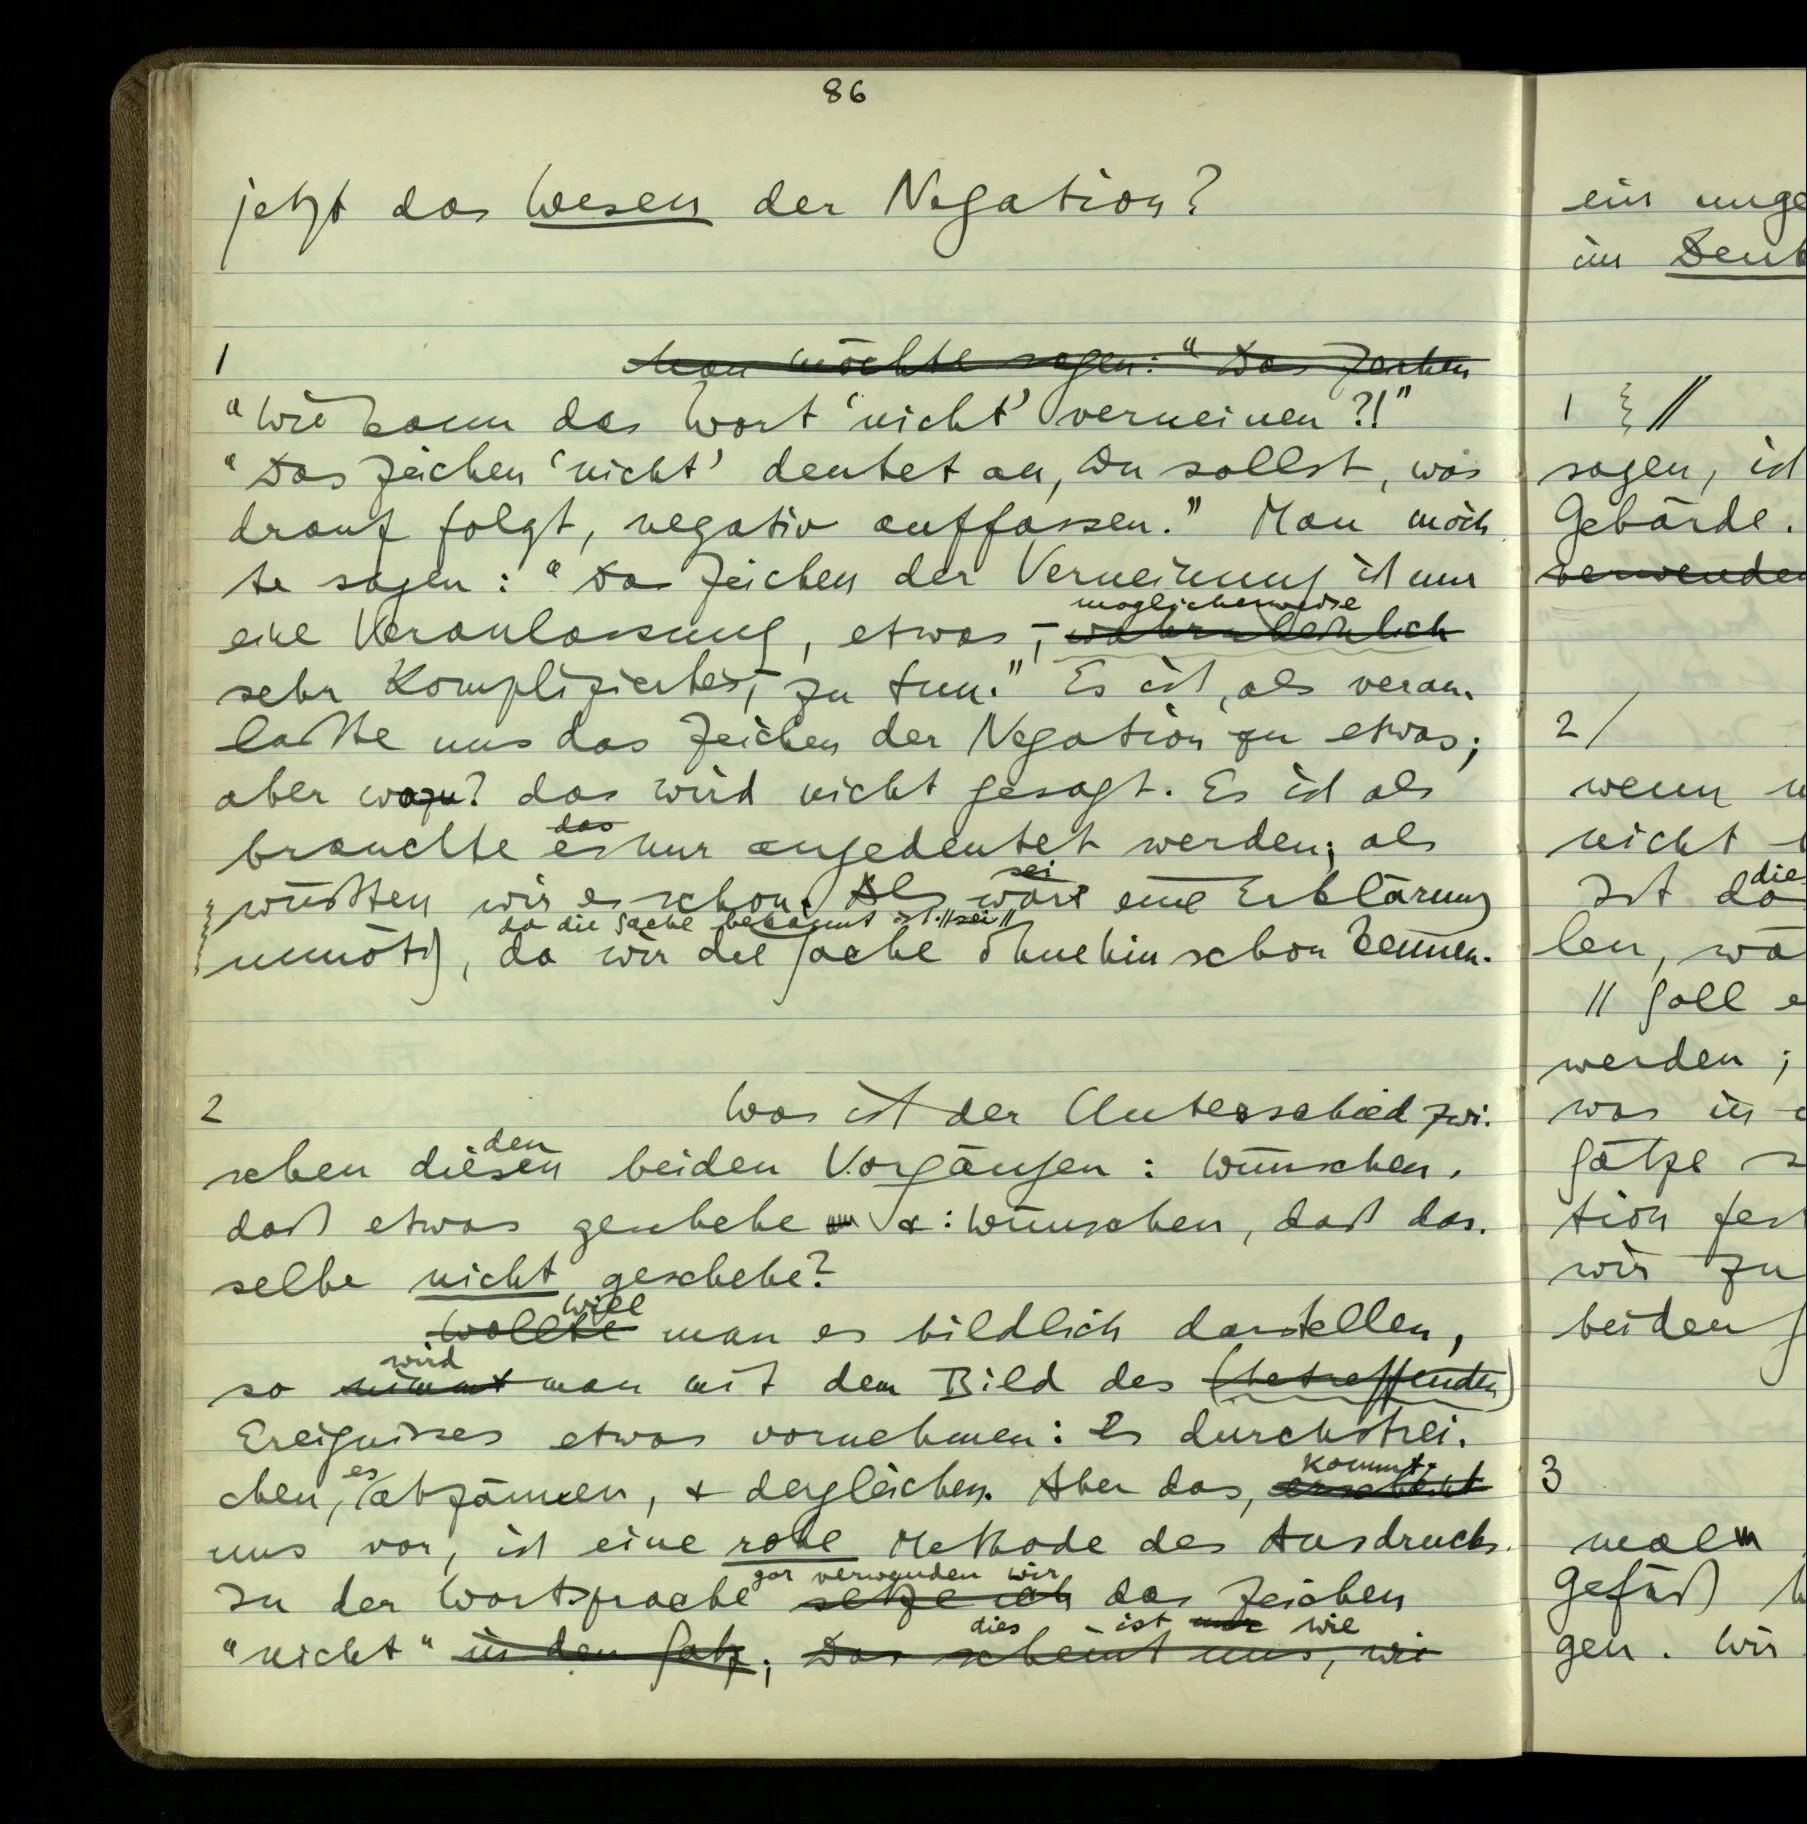 86
jetzt das Wesen der Negation?
1 Man möchte sagen: "Das Zeichen
"Wie kann das Wort 'nicht' verneinen?!"
"Das Zeichen 'nicht' deutet an, Du sollst, was
drauf folgt, negativ auffassen." Man möch
te sagen: "Das Zeichen der Verneinung ist nur
möglicherweise
eine Veranlassung, etwas – wahrscheinlich
sehr Kompliziertes – zu tun." Es ist, als veran-
laßte uns das Zeichen der Negation zu etwas;
aber wozu? das wird nicht gesagt. Es ist als
das
brauchte es nur angedeutet werden; als
sei
wüßten wir es schon. Als wäre eine Erklärung
da die Sache bekannt ist. // sei //
unnötig, da wir die Sache ohnehin schon kennen.
2 Was ist der Unterschied zwi-
den
schen diesen beiden Vorgängen: wünschen,
daß etwas geschehe &: wünschen, daß das-
selbe nicht geschehe?
will
Wollte man es bildlich darstellen,
wird
so nimmt man mit dem Bild des (betreffenden)
Ereignisses etwas vornehmen: es durchstrei-
es
chen, abzäunen, & dergleichen. Aber das,
kommt
uns vor, ist eine rohe Methode des Ausdrucks.
gar verwenden wir
In der Wortsprache setze ich das Zeichen
dies ist nur wie
"nicht" in den Satz; Das scheint uns, wie
ein unge
im Denk
1 //
sagen, ist
Gebärde.
verwenden
2 /
wenn
nicht
die
Ist da
len, wä
// Soll e
werden;
was in
Sätze s
tion fest
wir zu
beiden
3
malen
Gefäß
gen. Wir